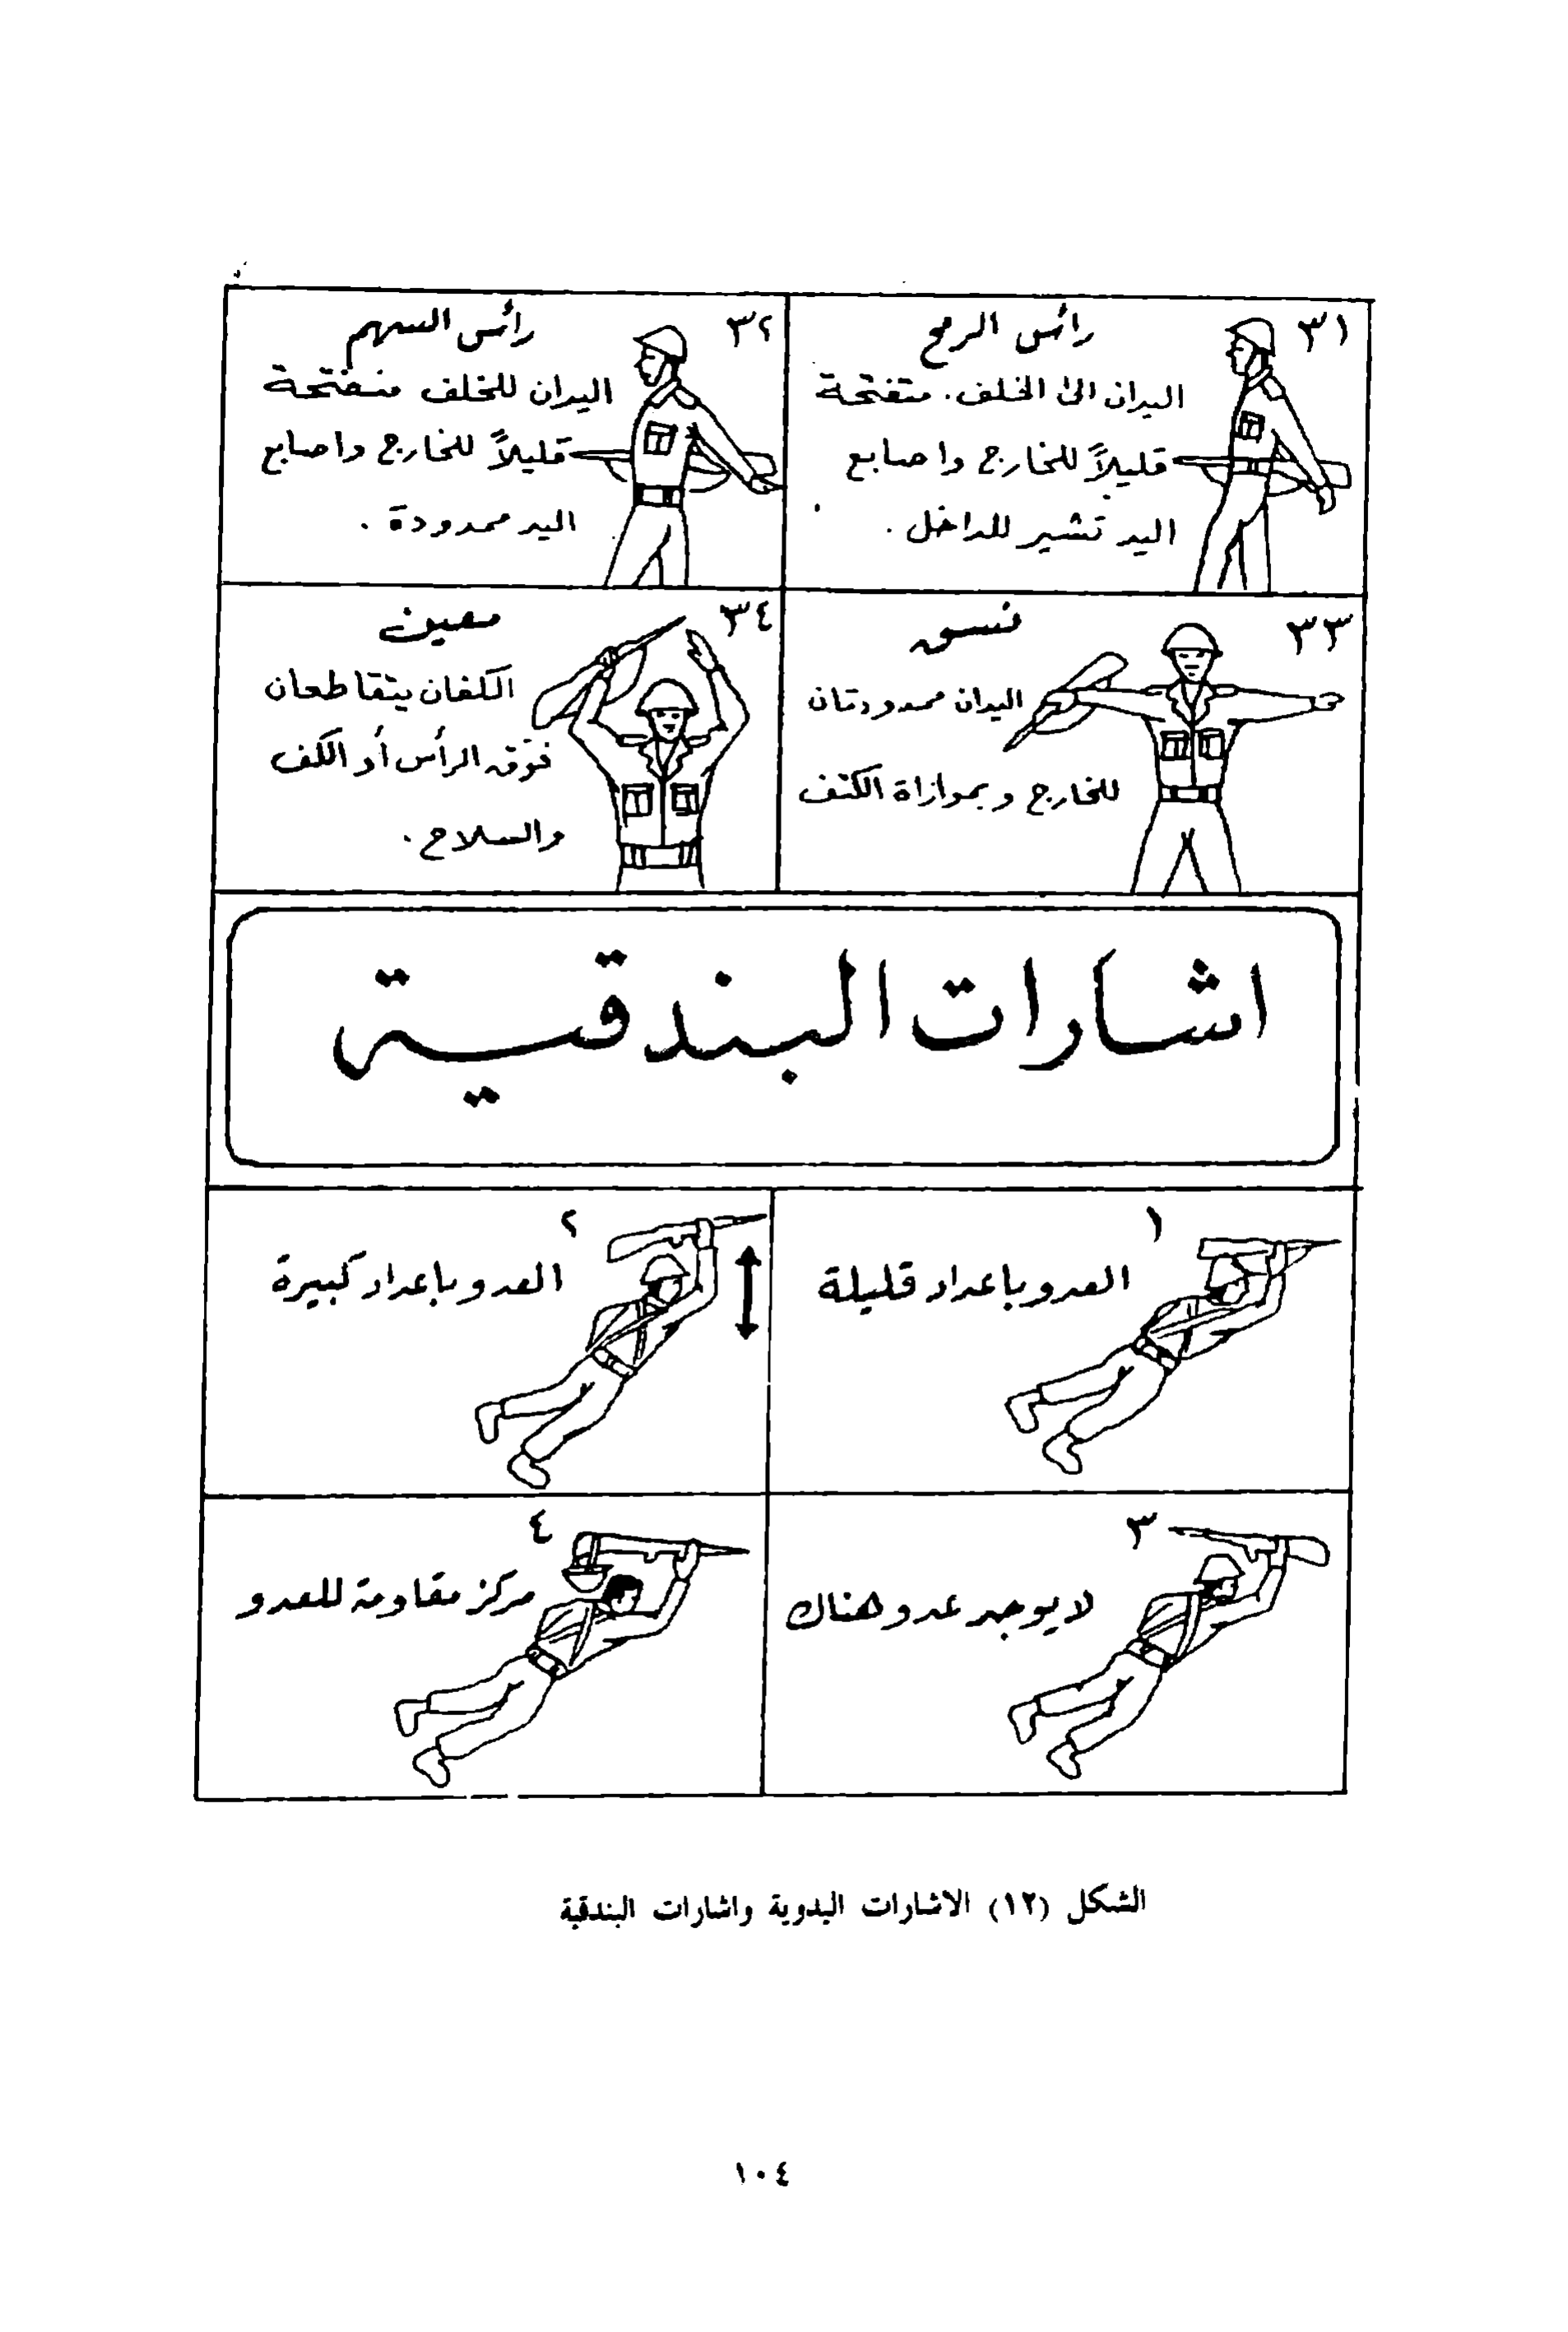 ٣١
رأس الرمح
اليدان الى الخلف. متفتحة
قليلاً للخارج واصابع
اليد تشير للداخل.
٣٢
رأس السهم
اليدان للخلف منفتحة
قليلاً للخارج واصابع
اليد ممدودة.
٣٣
نسق
اليدان ممدودتان
للخارج وبموازاة الكتف
٣٤
معين
الكفان يتقاطعان
فوق الرأس أو الكف
والسلاح.
اشارات البندقية
١
العدو باعداد قليلة
٢
العدو باعداد كبيرة
٣
لا يوجد عدو هناك
٤
مركز مقاومة للعدو
الشكل (١٢) الاشارات اليدوية واشارات البندقية
١٠٤